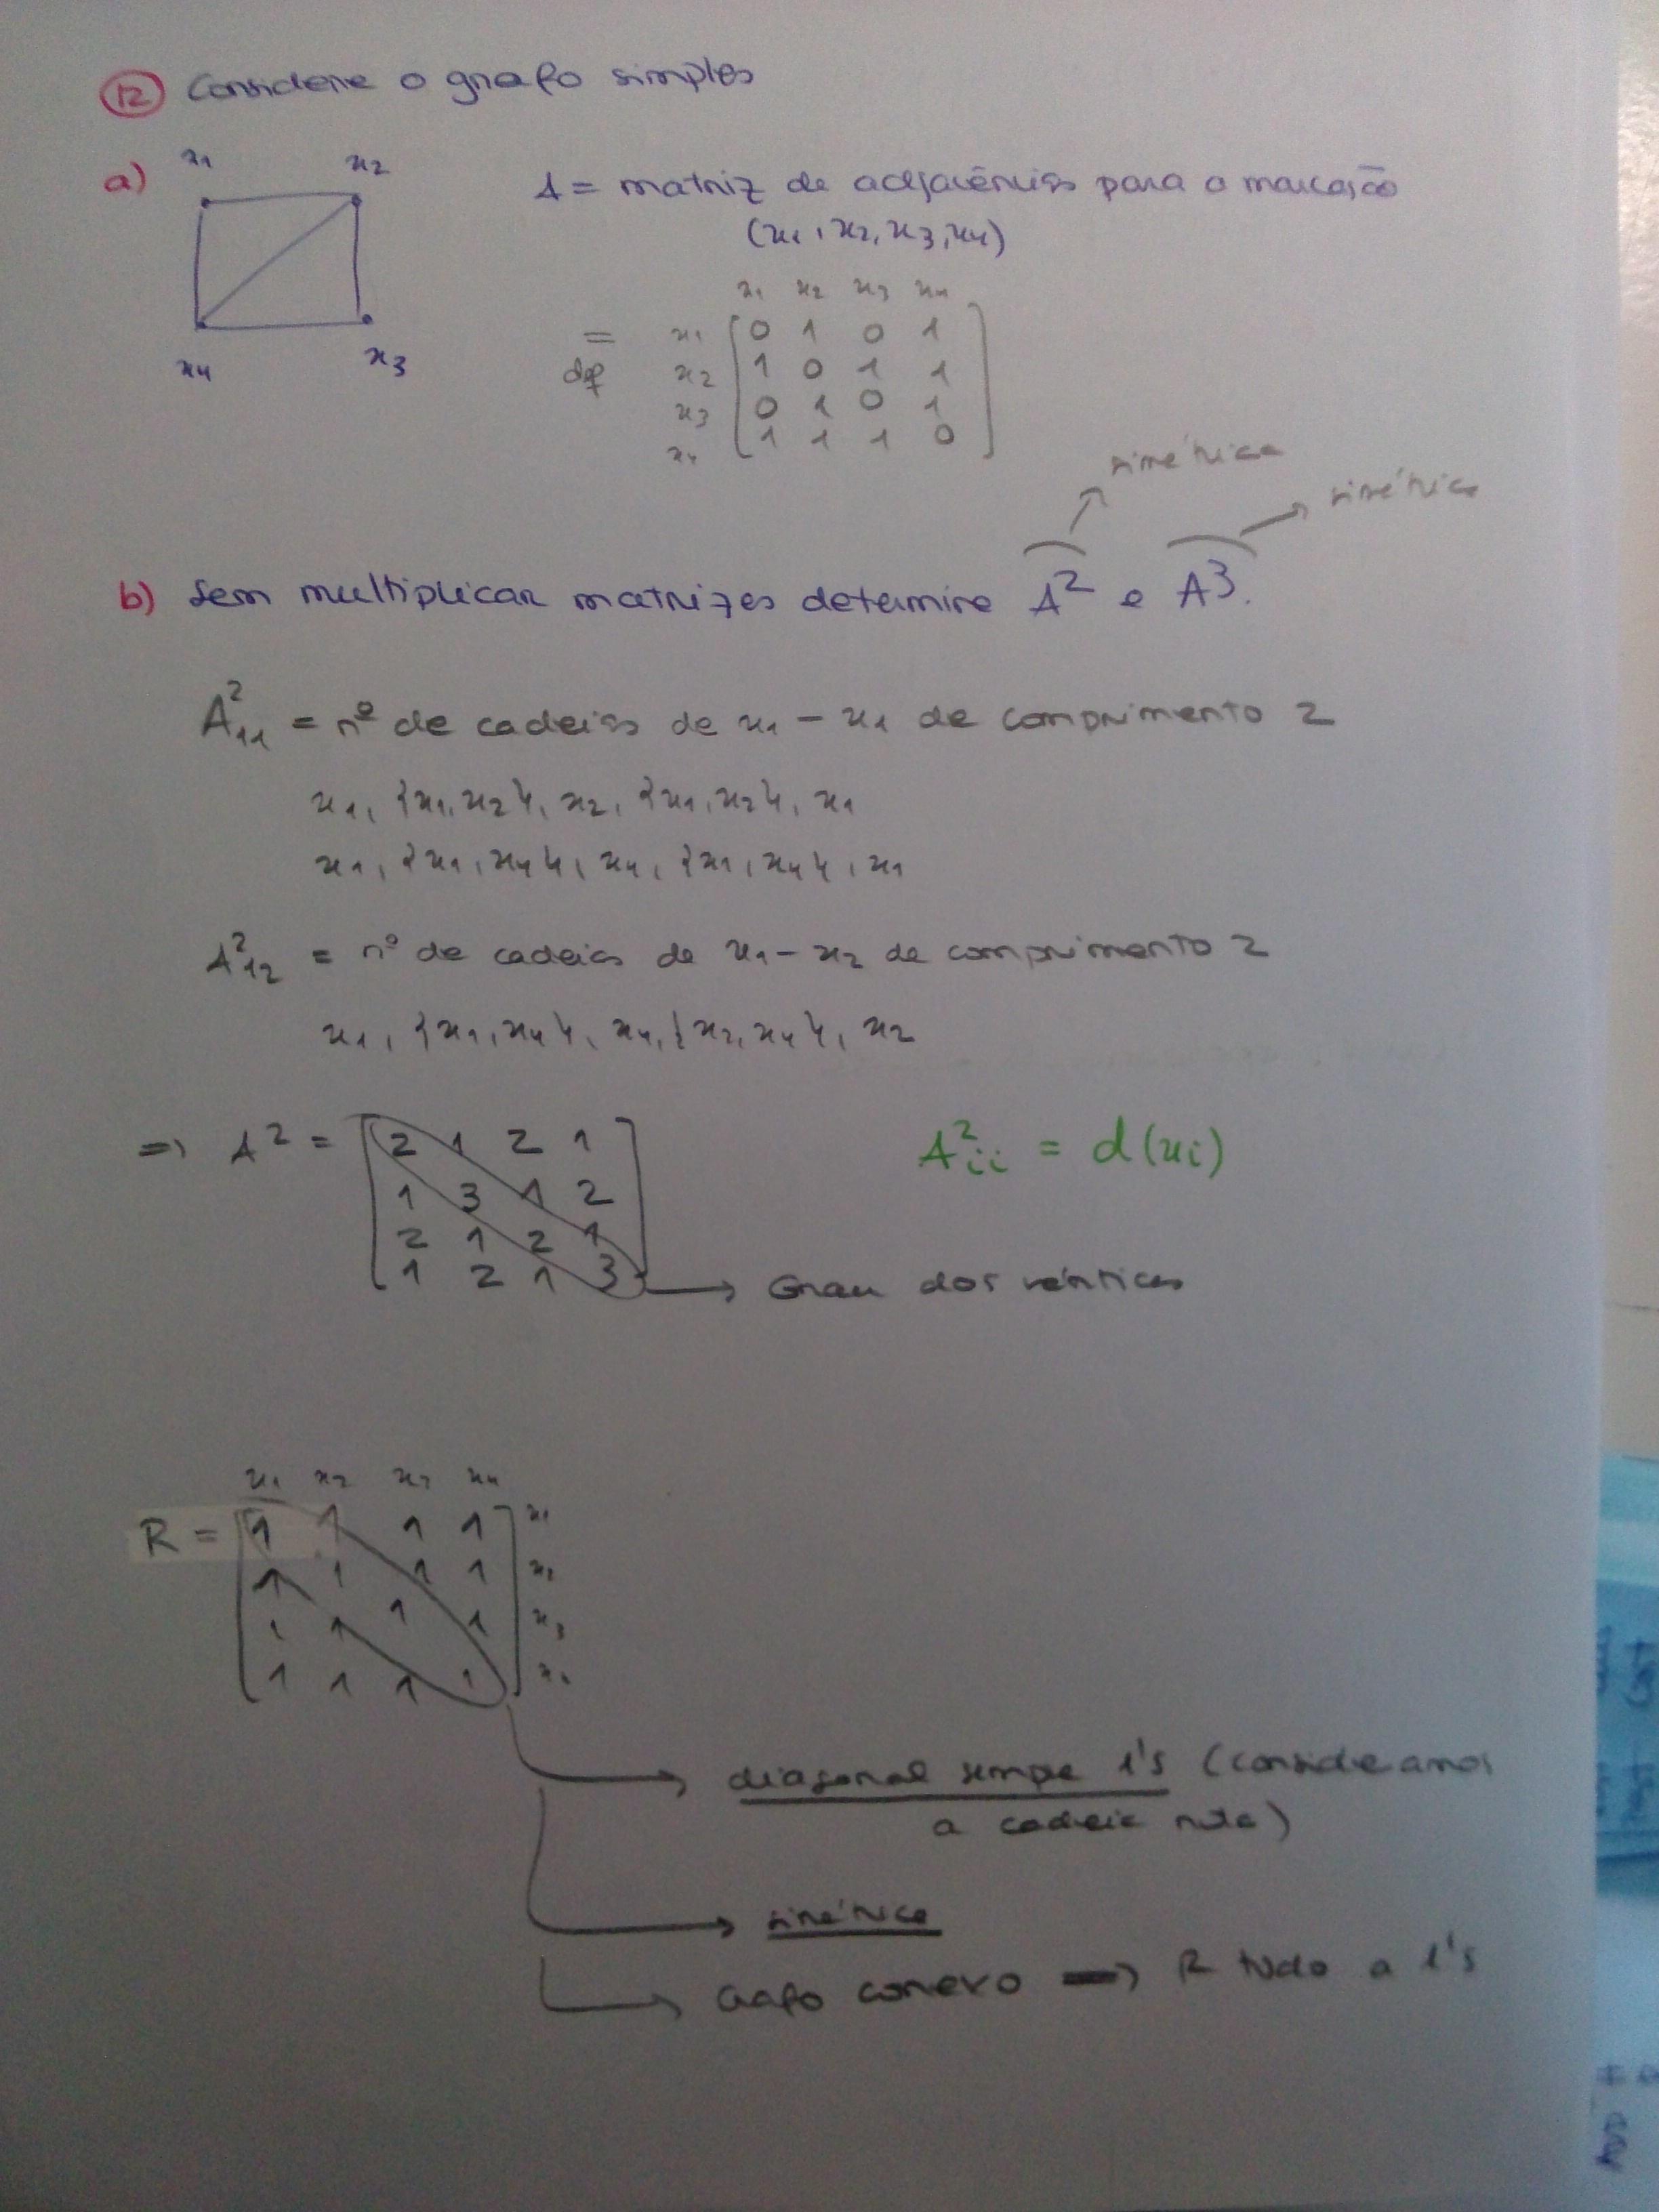 12 Considere o grafo simples
a)
x1 x2
x4 x3
A = matriz de adjacências para a marcação
(x1, x2, x3, x4)
x1 x2 x3 x4
= def
x1 0 1 0 1
x2 1 0 1 1
x3 0 1 0 1
x4 1 1 1 0
simétrica
simétrica
b) Sem multiplicar matrizes determine A² e A³.
A²11 = nº de cadeias de x1 - x1 de comprimento 2
x1, {x1, x2}, x2, {x1, x2}, x1
x1, {x1, x4}, x4, {x1, x4}, x1
A²12 = nº de cadeias de x1 - x2 de comprimento 2
x1, {x1, x4}, x4, {x2, x4}, x2
=> A² = [2 1 2 1
1 3 1 2
2 1 2 1
1 2 1 3]
A²ii = d(xi)
→ Grau dos vértices
x1 x2 x3 x4
R = [1 1 1 1] x1
1 1 1 1 x2
1 1 1 1 x3
1 1 1 1 x4
→ diagonal sempre 1's (consideramos
a cadeia nula)
→ simétrica
→ Grafo conexo => R tudo a 1's